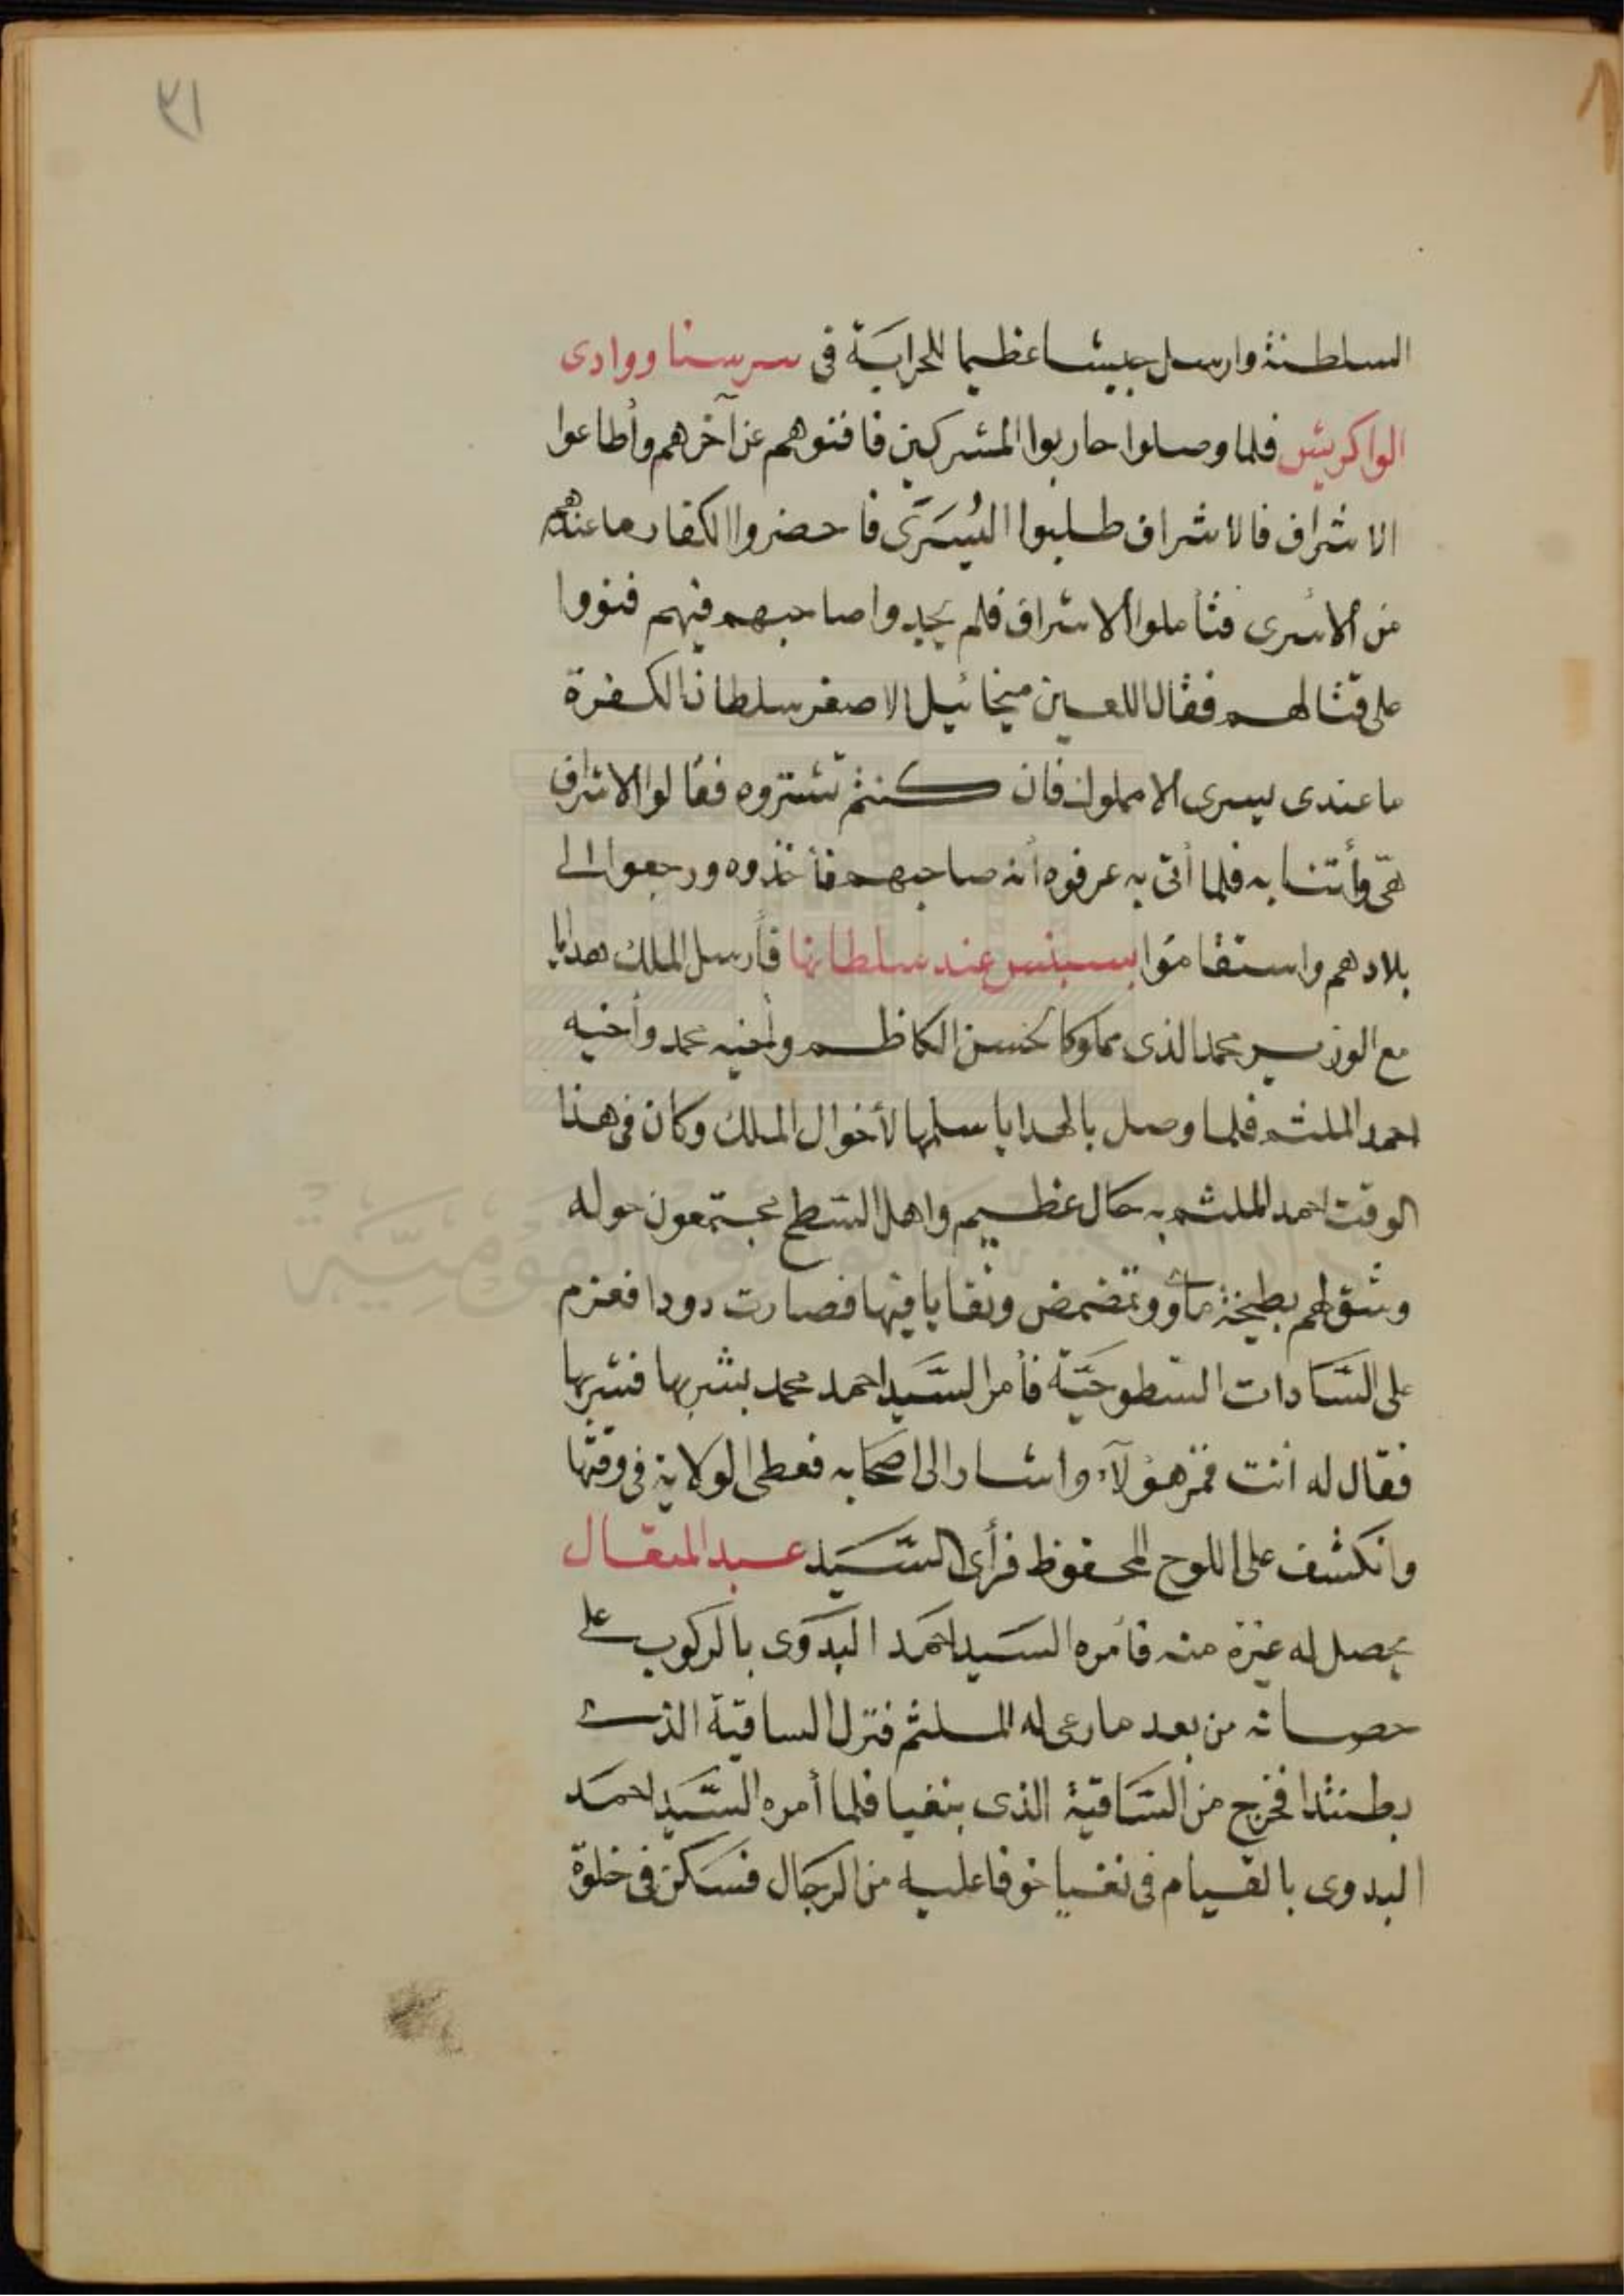 ٢١
السلطنة وارسل جيشا عظيما للحرابَة فى سرسنا ووادى
الواكريش فلما وصلوا حاربوا المشركين فافنوهم عن آخرهم وأطاعوا
الاشراف فالاشراف طلبوا اليُسَرَى فاحضروا الكفار ما عندهم
من الأسرى فتأملوا الاشراف فلم يجدوا صاحبهم فيهم فنووا
على قتالهم فقال اللعين ميخائيل الاصفر سلطان الكفرة
ما عندى يسرى الا مملوك فان كنتم تشتروه فقالوا الاشراف
هى وأتنا به فلما أتى به عرفوه أنه صاحبهم فأخذوه ورجعوا الى
بلادهم واستقاموا بسبنس عند سلطانها فأرسل الملك هدايا
مع الوزير محمد الذى مملوكا لحسن الكاظم وأخيه محمد وأخيه
احمد الملثم فلما وصل بالهدايا سلمها لأخوال الملك وكان فى هذا
الوقت احمد الملثم به حال عظيم واهل السَّطح مجتمعون حوله
وشق لهم بطيخة ماوو وتمضمض ونقايا فيها فصارت دودا فعزم
على السَّادات السّطوحيَّة فأمر السَّيد احمد محمد بشربها فشربها
فقال له أنت قمر هؤلآء واشار الى اصحابه فعطى الولاية فى وقتها
وانكشف على اللوح المحفوظ فرأى السَّيد عبد المتعال
يحصل له عيزة منه فأمره السَيد احمَد البَدَوى بالركوب على
حصانه من بعد ما رعى له الملثم فنزل الساقية الذى
بطنتدا فخرج من السَّاقية الذى بنفيا فلما أمره السَّيد احمَد
البدوى بالقيام فى نفيا خوفا عليه من الرجَال فسَكن فى خلوة